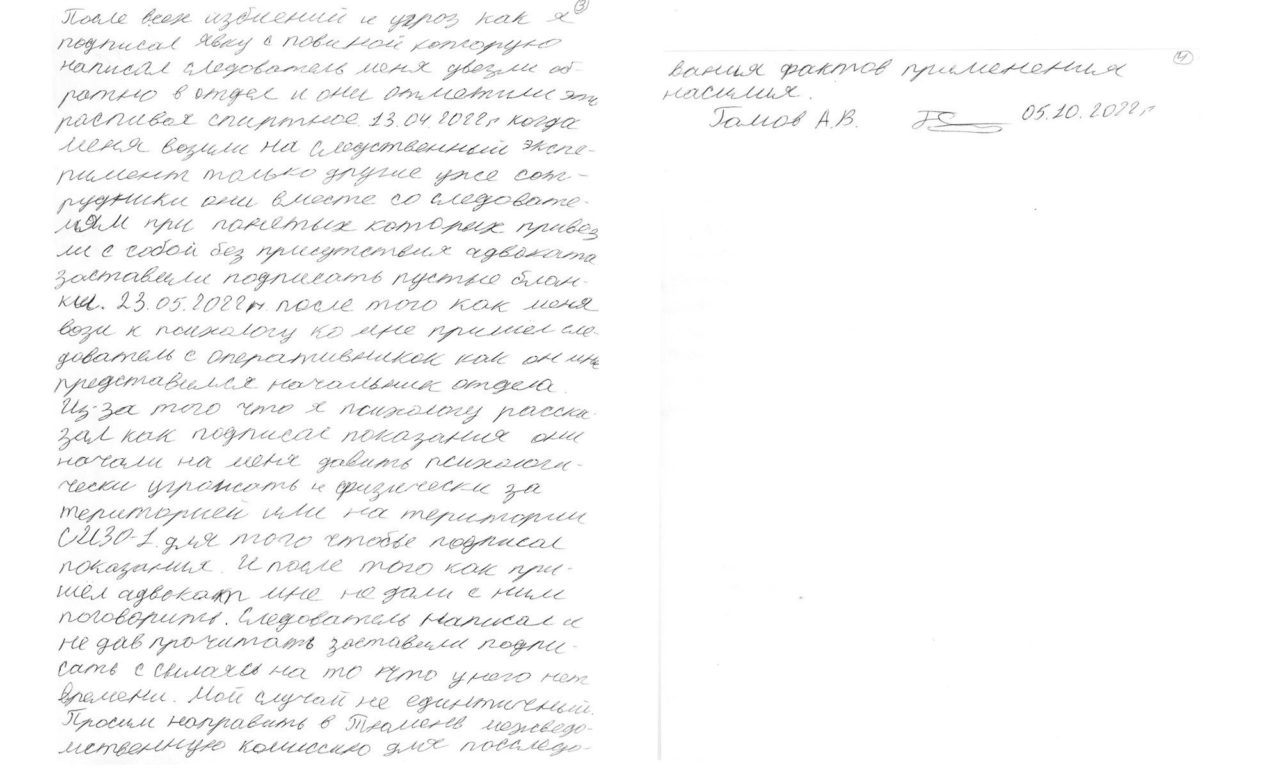 3
После всех избиений и угроз как я
подписал явку с повиной которую
написал следователь меня увезли об-
ратно в отдел и они отметили это
распивая спиртное. 13.04.2022г когда
меня возили на следственный экспе-
римент только другие уже сот-
рудники они вместе со следовате-
лям при понетых которых привез
ли с собой без присутствия адвоката
заставили подписать пустые блан-
ки. 23.05.2022г. после того как меня
вози к психологу ко мне пришел сле-
дователь с оперативником как он мне
представился начальник отдела.
Из-за того что я психологу расска-
зал как подписал показания они
начали на меня давить психологи-
чески угрожать и физически за
територией или на територии
СИЗО-1 для того чтобы подписал
показания. И после того как при-
шёл адвокат мне не дали с ним
поговорить. Следователь написал и
не дав прочитать заставили подпи-
сать с сылаясь на то что у него нет
времени. Мой случай не единтичный.
Просим направить в Тюмень межведо-
мственную комиссию для расследо-
4
вания фактов применения
насилия.
Гомов А.В. 05.10.2022г